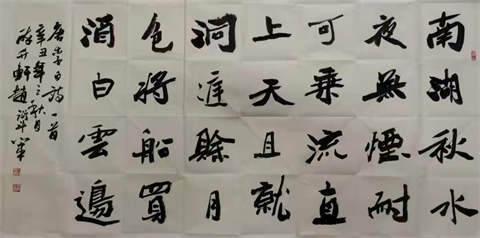 南湖秋水
夜無煙耐
可乘流直
上天且就
洞涯賒月
色將船買
酒白雲邊
唐李白詩一首
辛丑年之秋月
軒趙